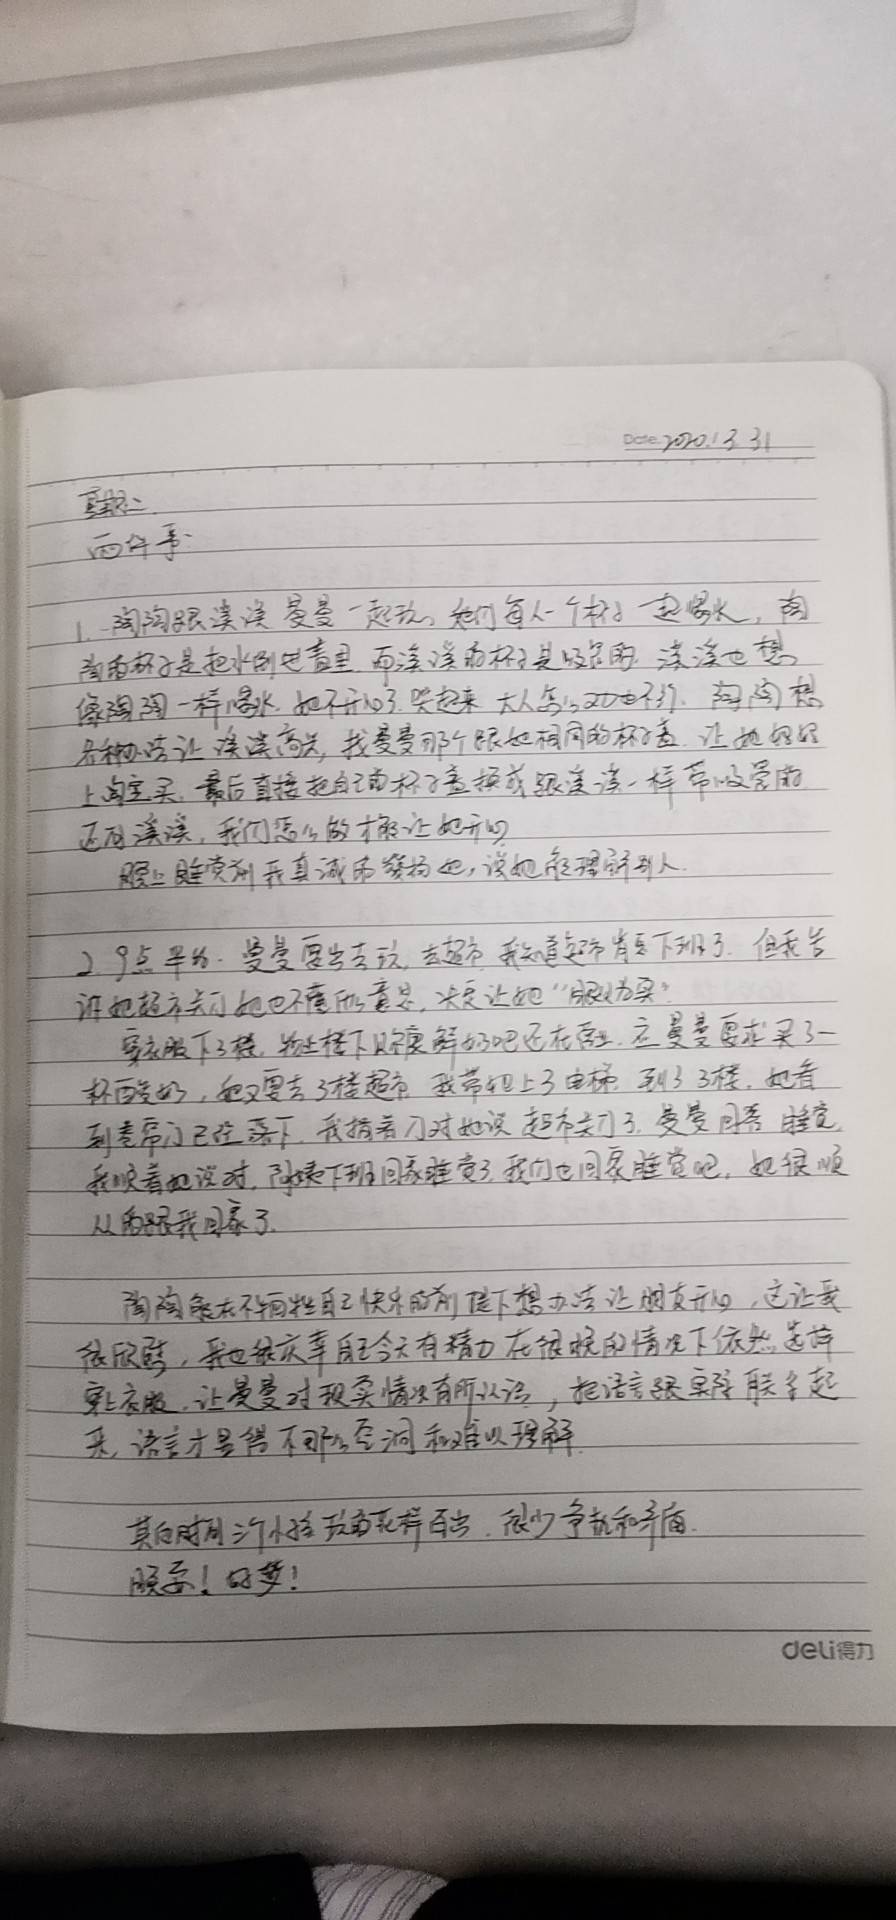 Date 2020.3.31
星期二
两件事:
1. 陶陶跟溪溪 曼曼一起玩, 她们每人一个杯子一起喝水, 陶
陶的杯子是把水倒进盖里 而溪溪的杯子是吸管的. 溪溪也想
像陶陶一样喝水. 她不开心了. 哭起来 大人怎么劝也不行. 陶陶想
各种办法让溪溪高兴, 找曼曼那个跟她相同的杯子盖. 让她妈妈
上淘宝买. 最后直接把自己的杯子盖换成跟溪溪一样带吸管的
还问溪溪, 我们怎么做才能让她开心
晚上睡觉前我真诚的表扬她, 说她能理解别人.
2. 9点半的. 曼曼要出去玩, 去超市. 我知道超市肯定下班了. 但我告
诉她超市关门她也不懂所以意思, 决定让她“眼见为实”
穿衣服下了楼. 楼下 还在营业. 在曼曼要求买了一
杯酸奶, 她又要去3楼超市. 我带她上了电梯 到了3楼. 她看
到卷帘门已经落下. 我指着门对她说 超市关门了. 曼曼回答 睡觉
我顺着她说对, 阿姨下班回家睡觉了, 我们也回家睡觉吧, 她很顺
从的跟我回家了.
陶陶能在不牺牲自己快乐的前提下想办法让朋友开心, 这让我
很欣慰, 我也很庆幸自己今天有精力在很晚的情况下依然选择
穿上衣服. 让曼曼对现实情况有所认识, 把语言跟实际联系起
来, 语言才显得不那么空洞和难以理解.
其它时间三个小孩玩的花样百出. 很少争执和矛盾.
晚安! 好梦!
deli得力